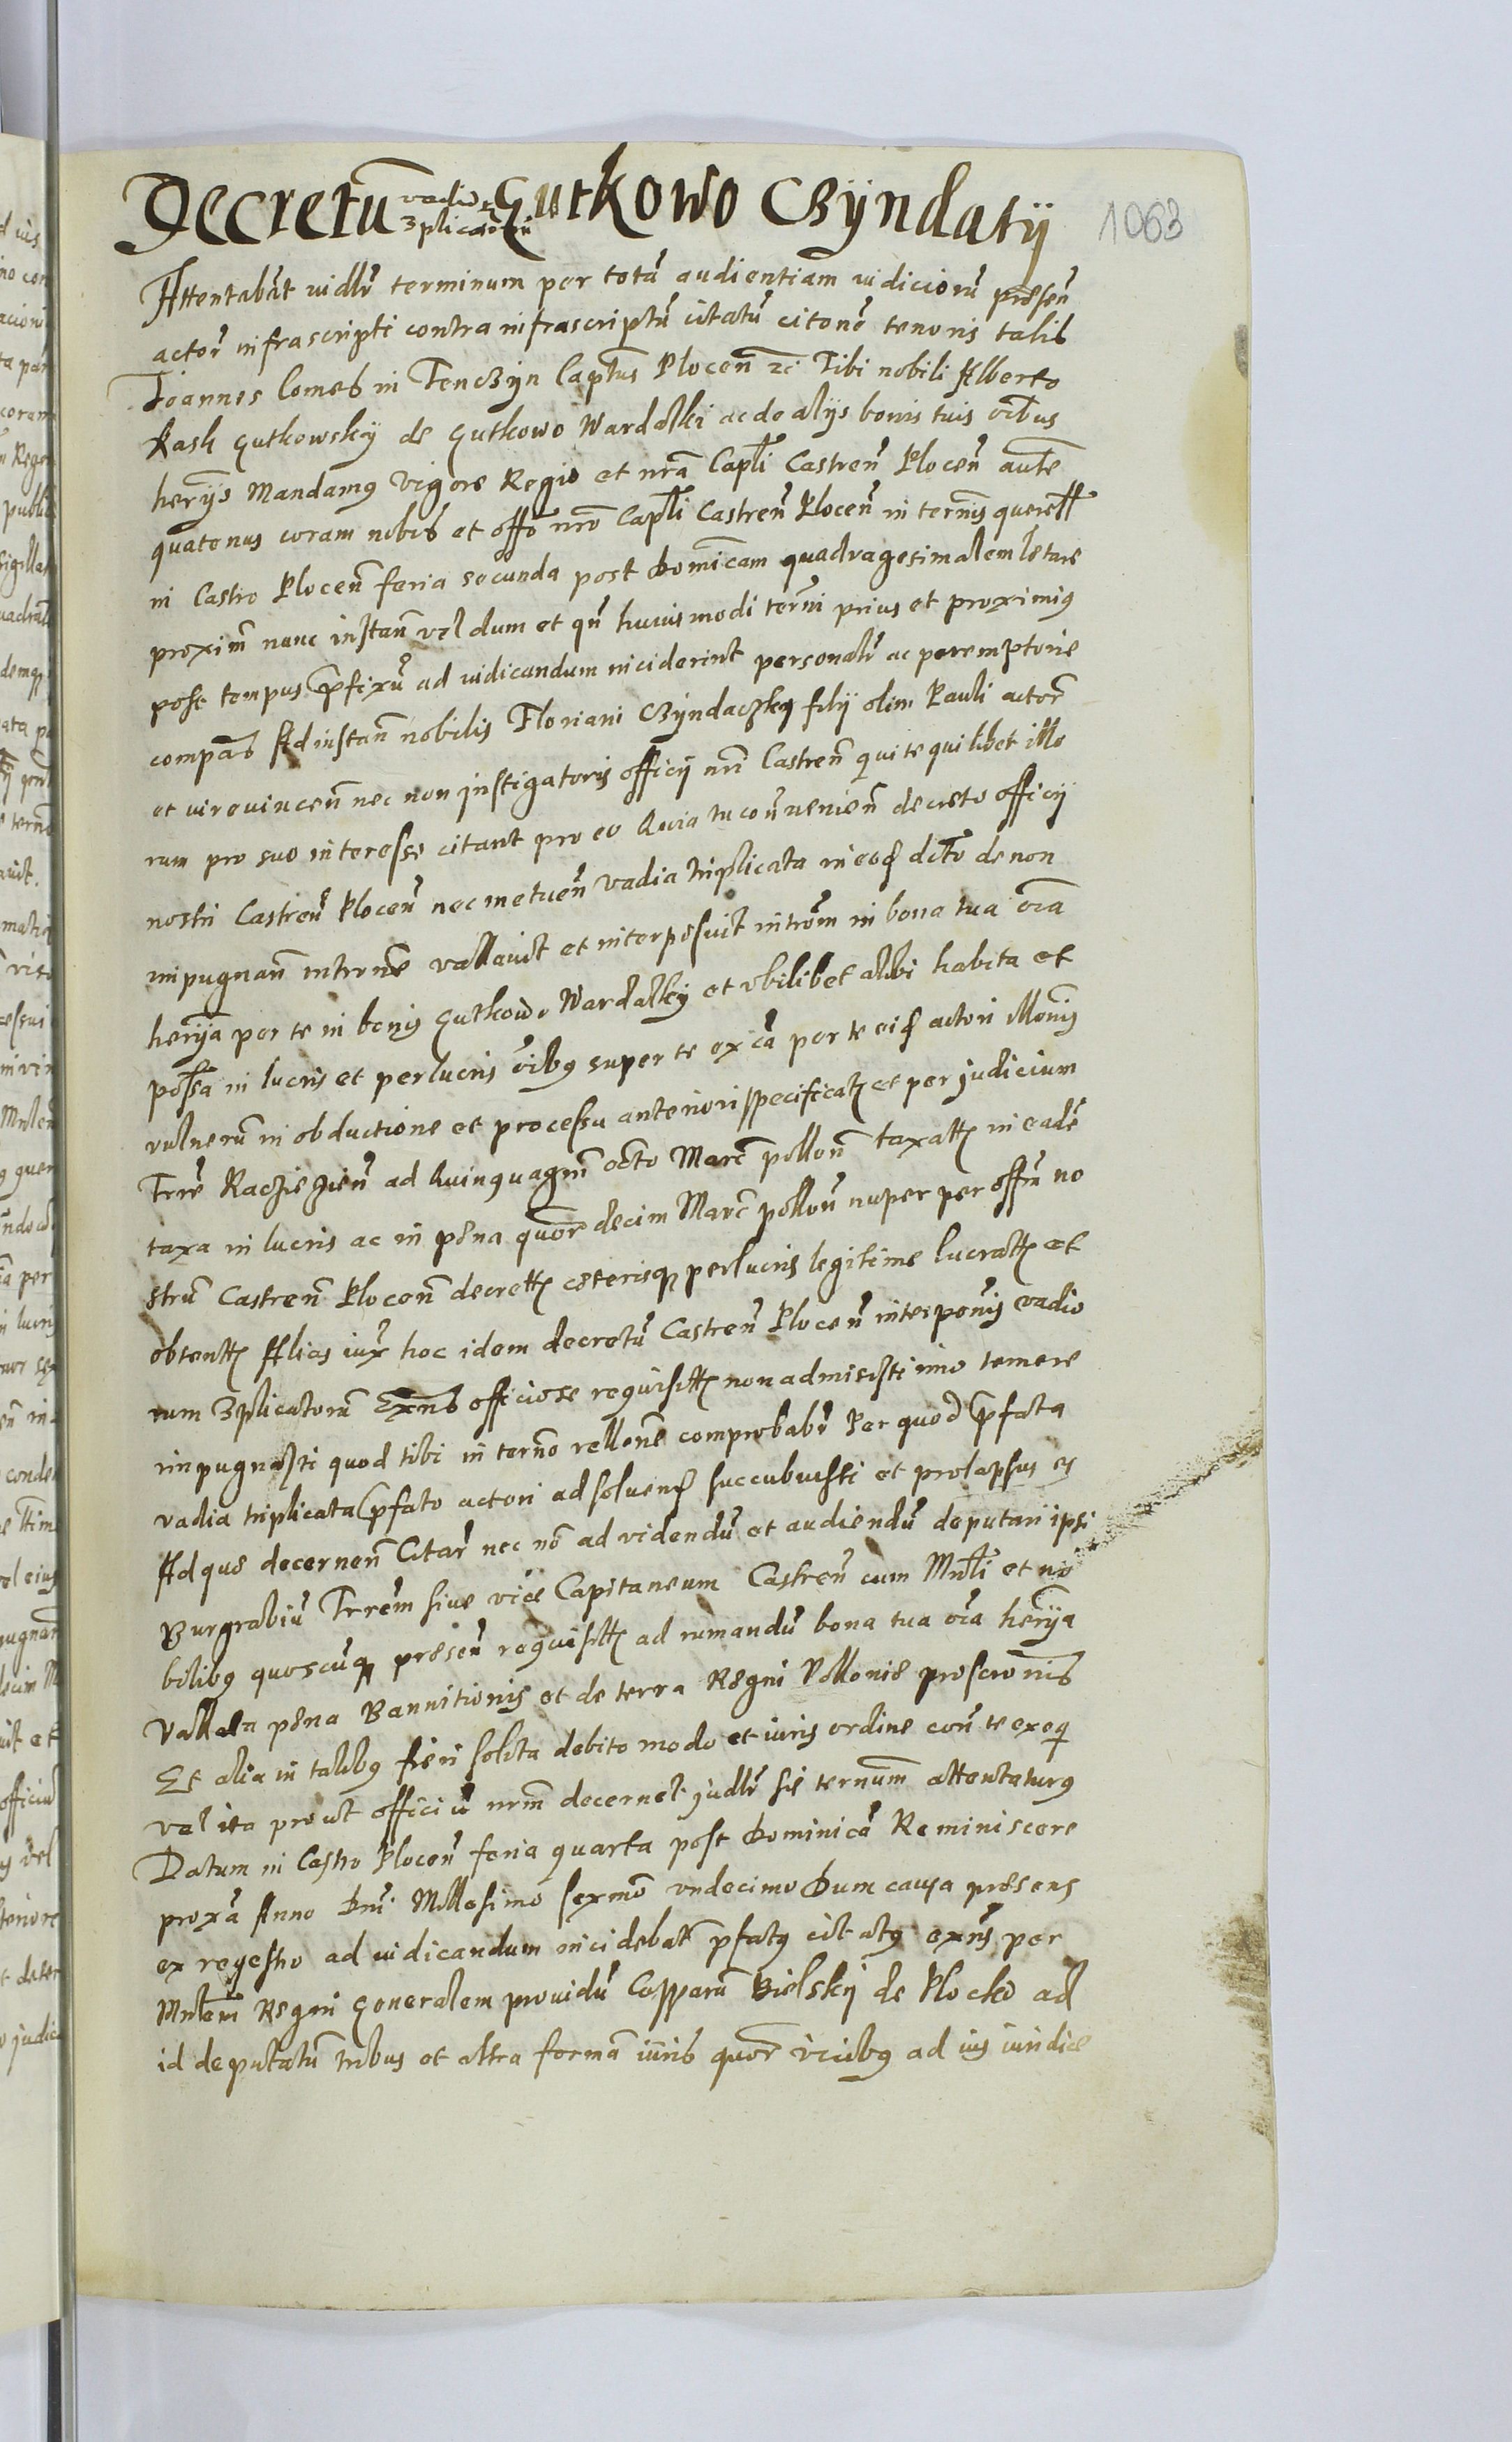 Decretu vadior 3plicatorū Gutkowo Czÿndatÿ
1063
Attentabāt iudlr terminum per totā audientiam iudiciorū presen
actor infrascripti contra infrascriptū citatū citone tenoris talis
Joannes Comes in Tenczÿn Captus Plocen zc Tibi nobili Alberto
Kask Gutkowskÿ de Gutkowo Wardalki ac de alÿs bonis tuis oibus
herijs Mandamus vigore Regio et nra Capli Castren Plocen aute
quatenus coram nobis et offo nro Capli Castren Plocen in ternis querell
in Castro Plocen feria secunda post Dominicam quadragesimalem letare
proxim nunc instan vel dum et qn huiusmodi terni prius et proximius
post tempus pfixū ad iudicandum inciderint personalr ac peremptorie
compeas Ad instan nobilis Floriani Czyndaczky filÿ olim Pauli actor
et vi evincen nec non Instigatoris officÿ nri Castren qui te quilibet illo
rum pro suo interesse citant pro eo Quia tu conveniēn decreto officÿ
nostri Castren Plocen nec metuen vadia triplicata in eod dcto de non
impugnan intrne vallavit et interposuit introm in bona tua oia
herija per te in bonis Gutkowo Wardalkÿ et vbilibet alibi habita et
possa in lucris et perlucris oibus super te ex ca per te eid actori illonis
vulnerū in obductione et processu anteriori specificatt et per judicium
Trre Raczieziens ad Quinquagin octo Marc pollon taxatt in eade
taxa in lucris ac in pena quor decim Marc pollon nuper per offm no
strū Castren Plocen decrett ceterisq perlucris legitime lucratt et
obtentt Alias iux hoc idem decretū Castren Plocen interponis vadio
rum 3plicatorū Exns officiose requisitt non admisisti imo temere
impugnasti quod tibi in terno rellone comprobabr Per quod pfata
vadia triplicata pfato actori ad solvend succubuisti et prolapsus es
Ad que decernen Citar nec no ad videndū et audiendū deputari ipsi
Burgrabiū Trrem sive vice Capitaneum Castren cum Mnli et no
bilibus quoscūq presen requisitt ad rumandū bona tua oia herija
Vallata pena Bannitionis et de terra Regni Pollonie proscronis
Et alia in talibus fieri solita debito modo et iuris ordine con te exeq
vel ita prout officiū nrm decernet judlr sis ternum attentaturus
Datum in Castro Plocen feria quarta post Dominicā Reminiscere
proxa Anno Dni Millesimo sexmo vndecimo Dum causa presens
ex regestro ad iudicandum incidebat pfatus citatus exns per
Mnlem Regni Generalem providū Casparū Bielskÿ de Plocko ad
id deputatū tribus et altra formā iuris quor vicibus ad ius iuridice